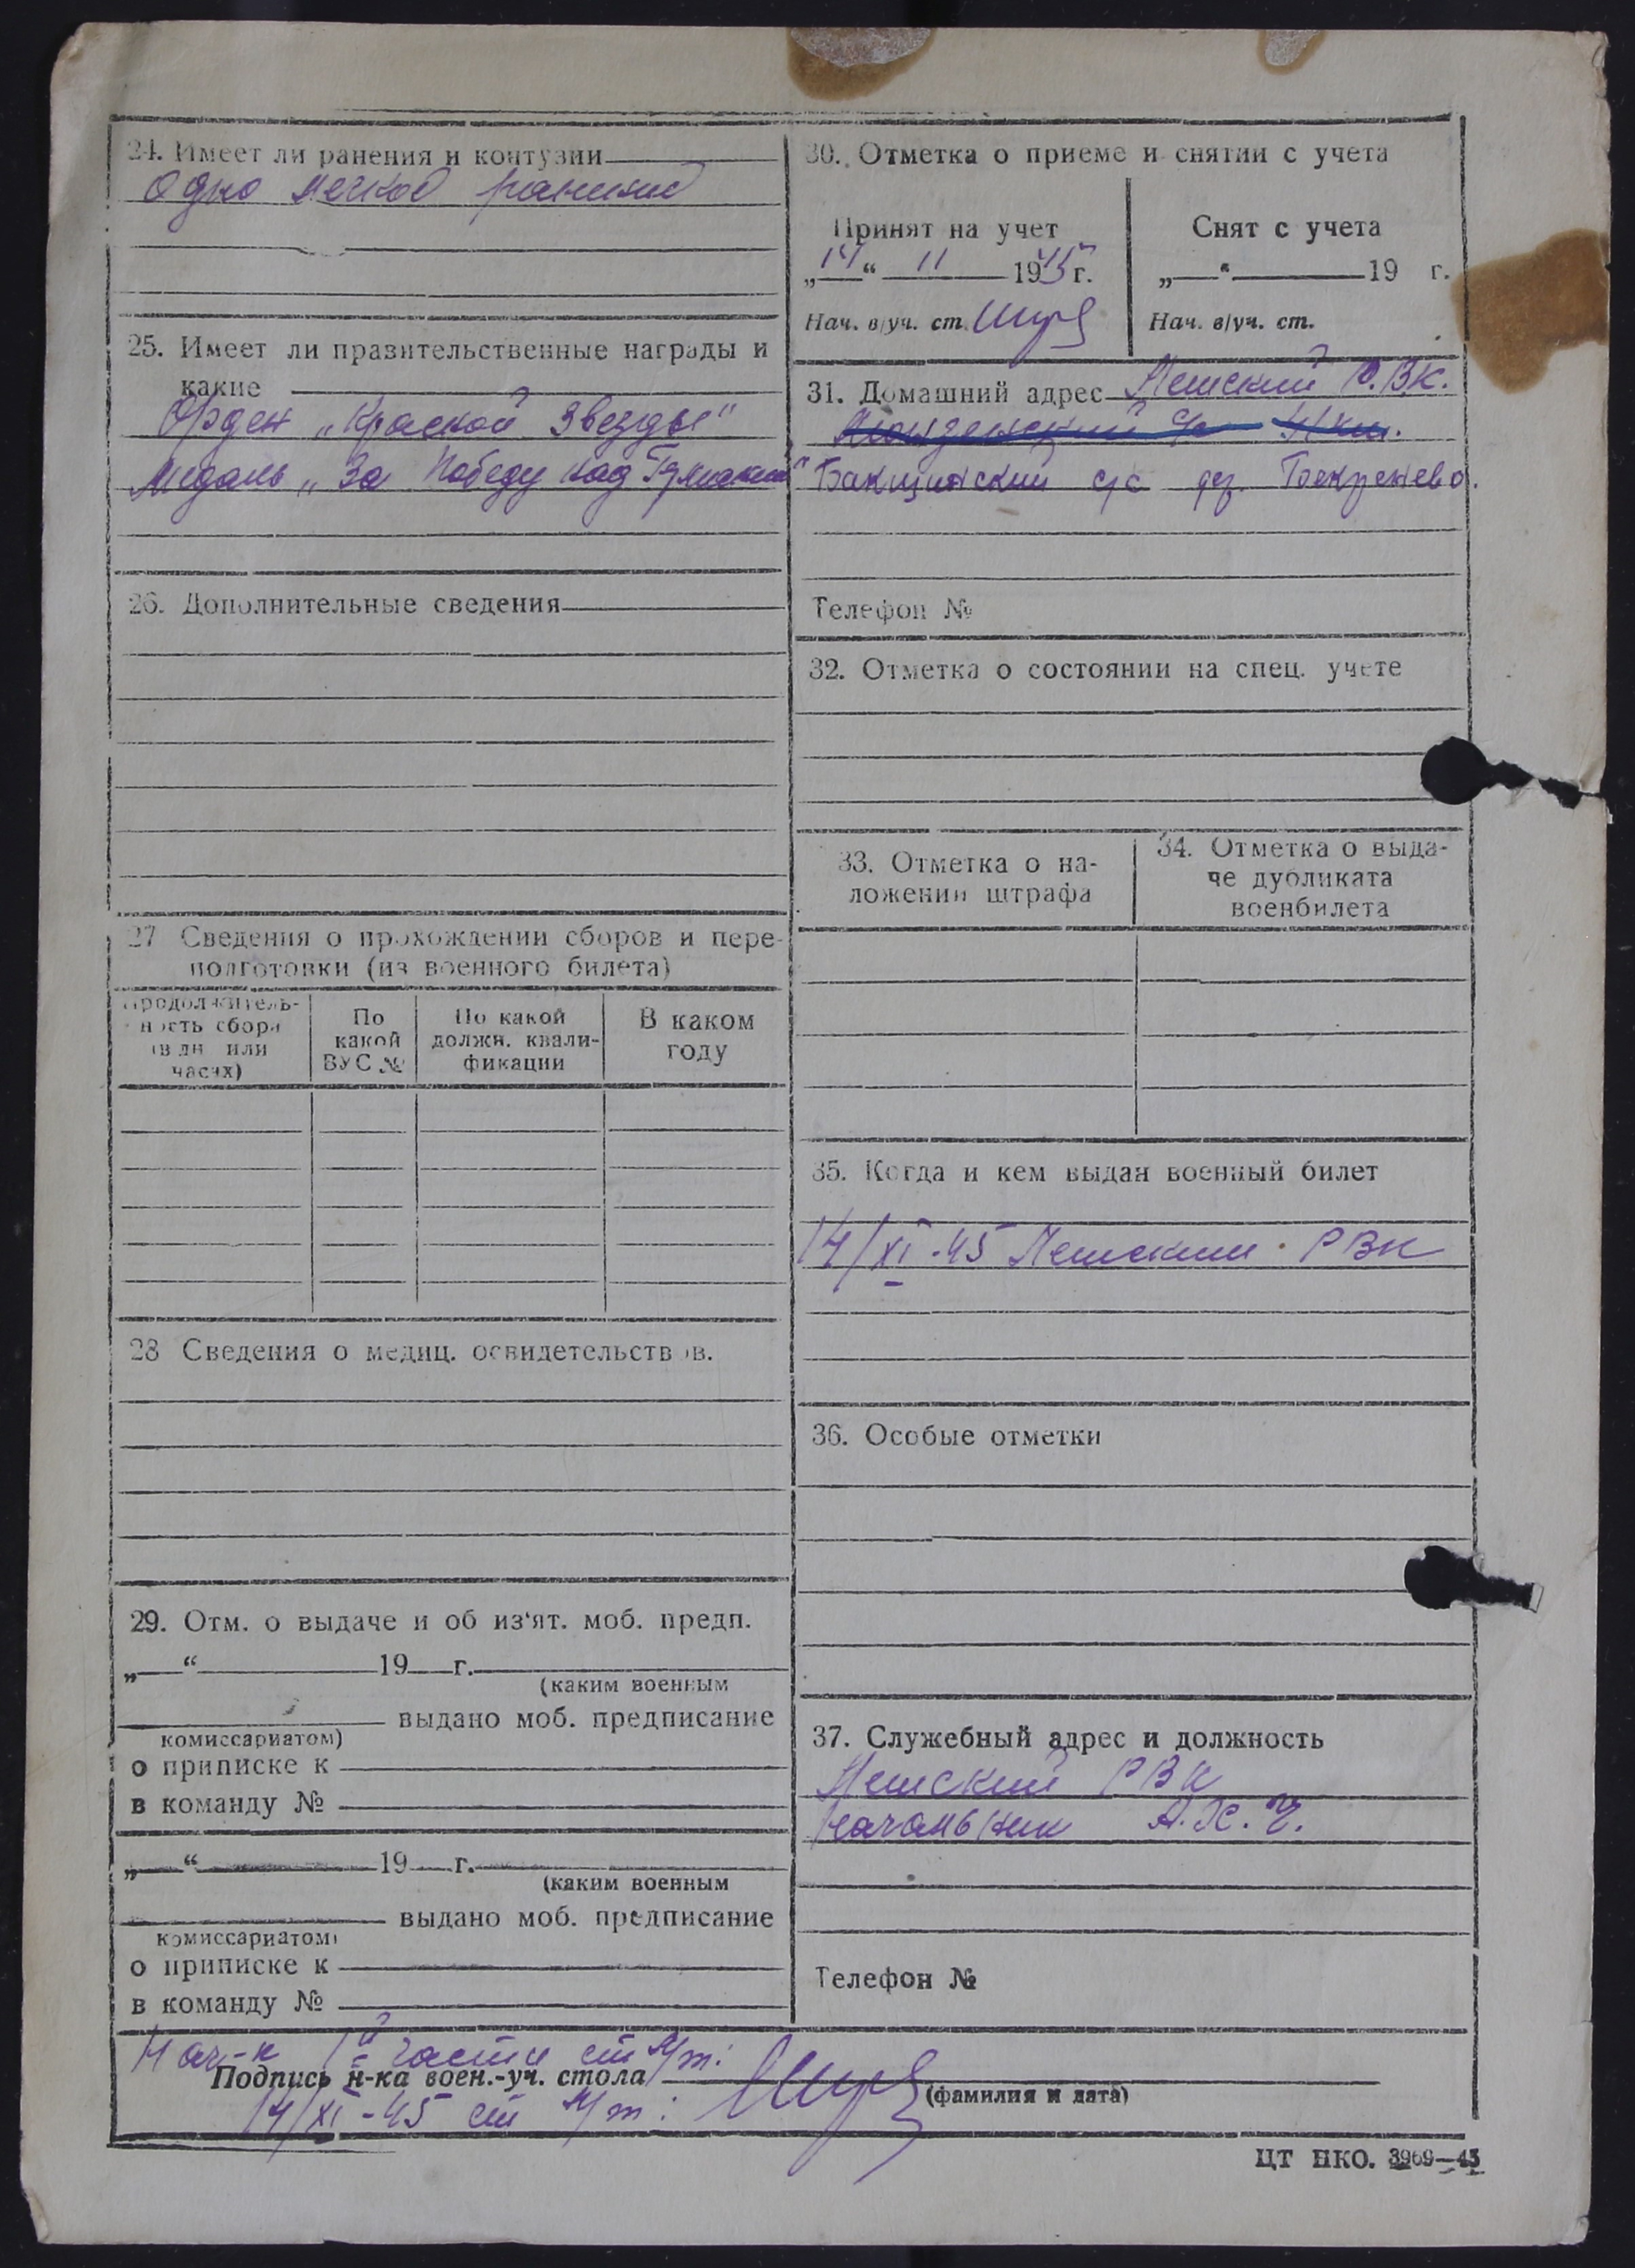 24. Имеет ли ранения и контузии
Одно легкое ранение
25. Имеет ли правительственные награды и
какие
Орден „Красной Звезды"
Медаль „За Победу над Германией"
26. Дополнительные сведения
27 Сведения о прохождении сборов и пере-
подготовки (из военного билета)
Продолжитель-
ность сбора
(в дн или
часах)
По
какой
ВУС №
По какой
должн. квали-
фикации
В каком
году
28 Сведения о медиц. освидетельств ов.
29. Отм. о выдаче и об из‘ят. моб. предп.
„ “ 19 г.
(каким военным
выдано моб. предписание
комиссариатом)
о приписке к
в команду №
„ “ 19 г.
(каким военным
выдано моб. предписание
комиссариатом)
о приписке к
в команду №
30. Отметка о приеме и снятии с учета
Принят на учет
„14“ 11 1945 г.
Нач. в/уч. ст.
Снят с учета
„ “ 19 г.
Нач. в/уч. ст.
31. Домашний адрес
с/с дер.
Телефон №
32. Отметка о состоянии на спец. учете
33. Отметка о на-
ложении штрафа
34. Отметка о выда-
че дубликата
военбилета
35. Когда и кем выдан военный билет
14/XI-45 РВК
36. Особые отметки
37. Служебный адрес и должность
РВК
Начальник А.Х.Ч.
Телефон №
Нач-к 1й части ст. л/т:
Подпись н-ка воен.-уч. стола
(фамилия и дата)
14/XI-45 ст л/т:
ЦТ НКО. 3969—45